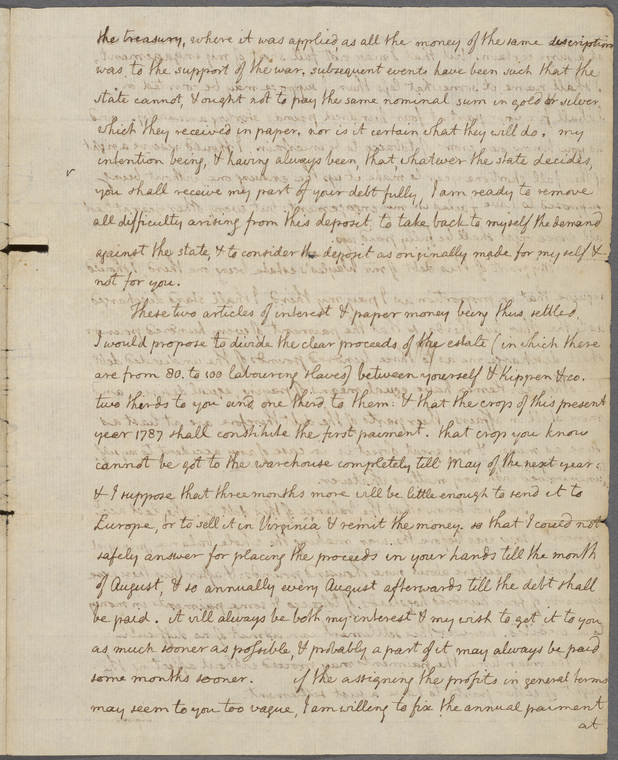 the treasury, where it was applied, as all the money of the same description
was, to the support of the war. subsequent events have been such that the
state cannot, & ought not to pay the same nominal sum in gold or silver
which they received in paper. nor is it certain what they will do. my
intention being, & having always been, that, whatever the state decides,
you shall receive my part of your debt fully, I am ready to remove
all difficulty arising from this deposit, to take back to myself the demand
against the state, & to consider the deposit as originally made for myself &
not for you.
These two articles of interest & paper money being thus settled,
I would propose to divide the clear proceeds of the estate (in which there
are from 80. to 100 labouring slaves) between yourself & Kippen & co.
two thirds to you and one third to them: & that the crop of this present
year 1787 shall constitute the first paiment. that crop you know
cannot be got to the warehouse completely till May of the next year:
& I suppose that three months more will be little enough to send it to
Europe, or to sell it in Virginia & remit the money. so that I could not
safely answer for placing the proceeds in your hands till the month
of August, & so annually every August afterwards till the debt shall
be paid. it will always be both my interest & my wish to get it to you
as much sooner as possible, & probably a part of it may always be paid
some months sooner. if the assigning the profits in general terms
may seem to you too vague, I am willing to fix the annual paiment
at